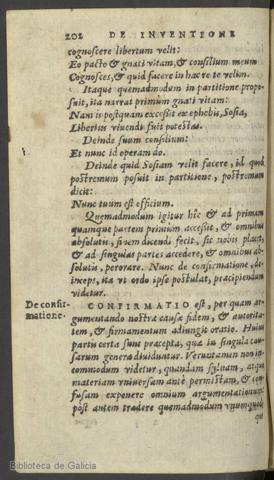 202 DE INVENTIONE
cognoscere libertum velit:
Eo pacto & gnati vitam, & consilium meum
Cognosces, & quid facere in hac re te velim.
Itaque quemadmodum in partitione propo-
suit, ita narrat primum gnati vitam:
Nam is postquam excessit ex ephebis, Sosia,
Liberius vivendi fuit potestas.
Deinde suum consilium:
Et nunc id operam do.
Deinde quid Sosiam velit facere, id quod
postremum posuit in partitione, postremum
dicit:
Nunc tuum est officium.
Quemadmodum igitur hîc & ad primam
quamque partem primùm accessit, & omnibus
absolutis, finem dicendi fecit, sic nobis placet,
& ad singulas partes accedere, & omnibus ab-
solutis, perorare. Nunc de confirmatione, de-
inceps, ita vt ordo ipse postulat, præcipiendum
videtur.
De confir-
matione.
CONFIRMATIO est, per quam ar-
gumentando nostræ causæ fidem, & autorita-
tem, & firmamentum adiungit oratio. Huius
partis certa sunt præcepta, quæ in singula cau-
sarum genera dividuntur. Veruntamen non in-
commodum videtur, quandam sylvam, atque
materiam vniversam antè permistam, & con-
fusam exponere omnium argumentationum:
pòst autem tradere quemadmodum vnumquod-
que
Biblioteca de Galicia